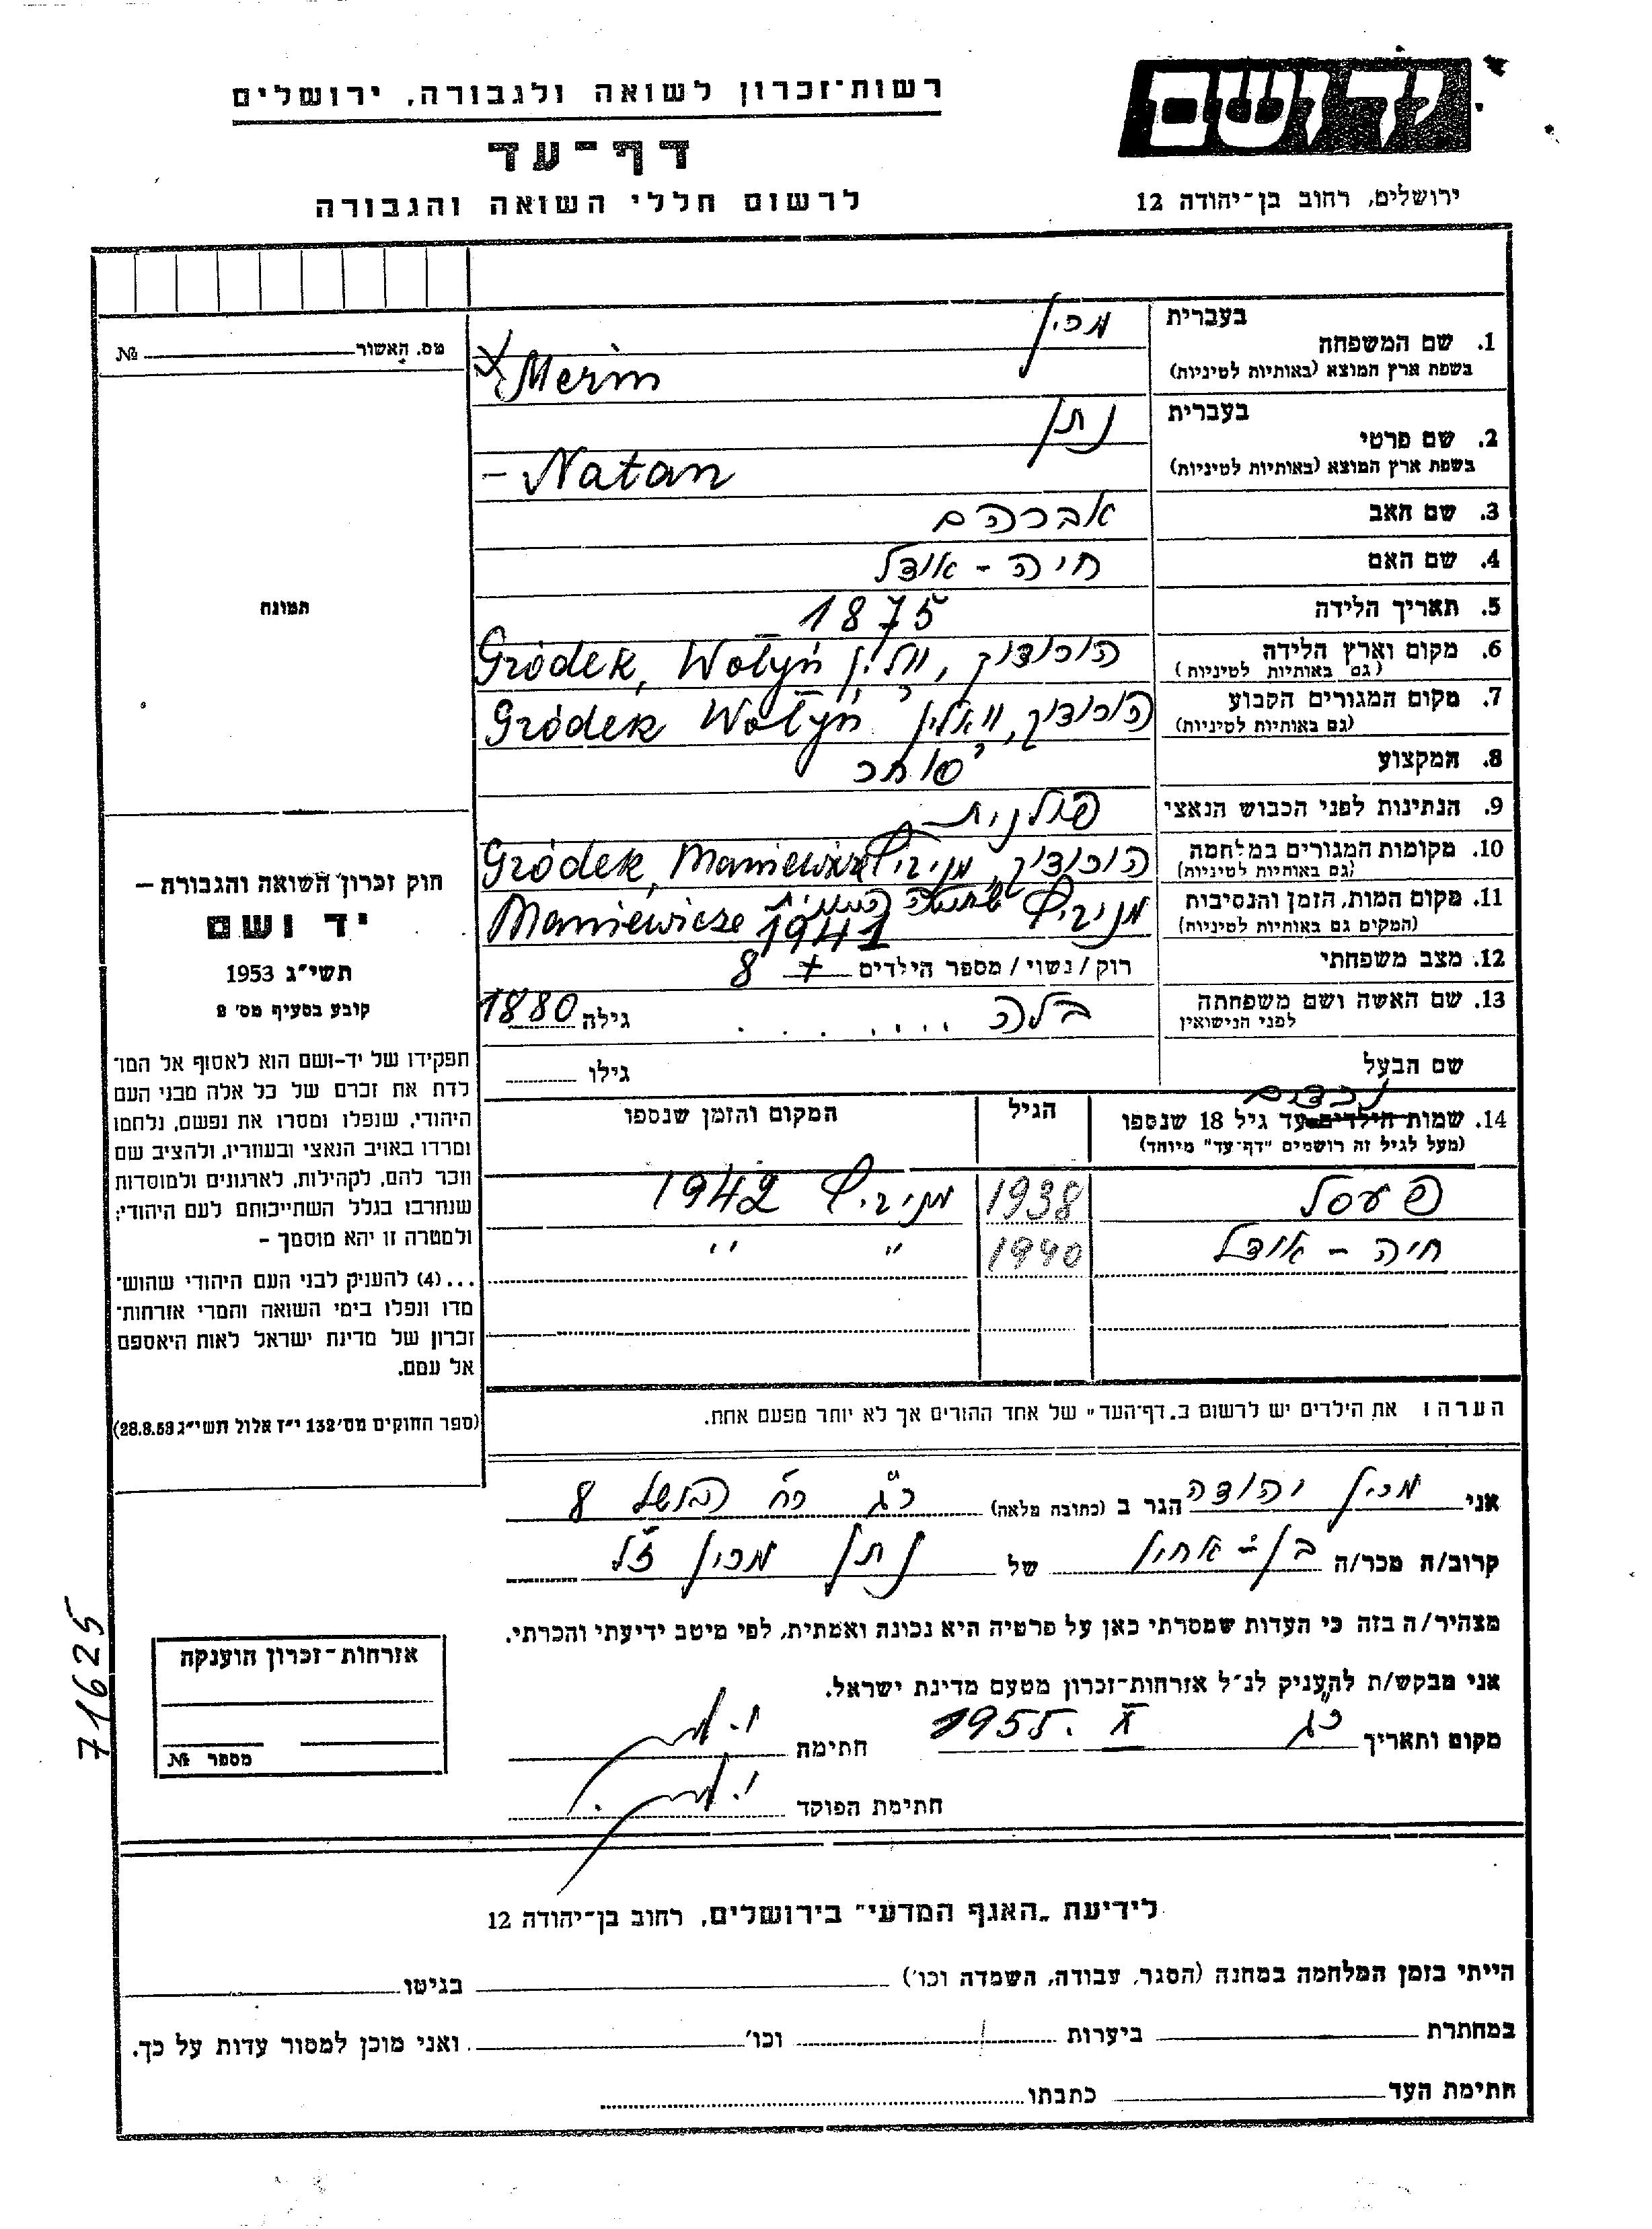 יד ושם
רשות־זכרון לשואה ולגבורה, ירושלים
דף־עד
לרשום חללי השואה והגבורה
ירושלים, רחוב בן־יהודה 12
מס. האשור № 
1. שם המשפחה
בעברית מרין
בשפת ארץ המוצא (באותיות לטיניות) Merin
2. שם פרטי
בעברית נתן
בשפת ארץ המוצא (באותיות לטיניות) - Natan
3. שם האב אברהם
4. שם האם חיה - אודל
5. תאריך הלידה 1875
6. מקום וארץ הלידה הורודוק, ווולין Gródek, Wołyń
(גם באותיות לטיניות)
7. מקום המגורים הקבוע הורודוק, וואלין Gródek Wołyń
(גם באותיות לטיניות)
8. המקצוע סוחר
9. הנתינות לפני הכבוש הנאצי פולנית
10. מקומות המגורים במלחמה הורודוק, מניביץ Gródek, Maniewicze
(גם באותיות לטיניות)
11. מקום המות, הזמן והנסיבות מניביץ 1941 Maniewicze
(המקים גם באותיות לטיניות)
12. מצב משפחתי רוק/נשוי/מספר הילדים + 8
13. שם האשה ושם משפחתה בלה ........ גילה 1880
לפני הנישואין
שם הבעל גילו
נכדים
14. שמות הילדים עד גיל 18 שנספו הגיל המקום והזמן שנספו
(מעל לגיל זה רושמים "דף־עד" מיוחד)
פעסל 1938 מניביץ 1942
חיה - אודל 1940 " " "
הערה: את הילדים יש לרשום ב"דף־העד" של אחד ההורים אך לא יותר מפעם אחת.
תמונה
חוק זכרון השואה והגבורה –
יד ושם
תשי"ג 1953
קובע בסעיף מס' 2
תפקידו של יד-ושם הוא לאסוף אל המו־
לדת את זכרם של כל אלה מבני העם
היהודי, שנפלו ומסרו את נפשם, נלחמו
ומרדו באויב הנאצי ובעוזריו, ולהציב שם
וזכר להם, לקהילות, לארגונים ולמוסדות
שנחרבו בגלל השתייכותם לעם היהודי;
ולמטרה זו יהא מוסמך –
...(4) להעניק לבני העם היהודי שהוש־
מדו ונפלו בימי השואה והמרי אזרחות־
זכרון של מדינת ישראל לאות היאספם
אל עמם.
(ספר החוקים מס' 132 י"ז אלול תשי"ג 28.8.53)
אני מרין יהודה הגר ב (כתובת מלאה) ר"ג רח' הנשל 8
קרוב/ה מכר/ה בן-אחיו של נתן מרין ז"ל
מצהיר/ה בזה כי העדות שמסרתי כאן על פרטיה היא נכונה ואמתית, לפי מיטב ידיעתי והכרתי.
אני מבקש/ת להעניק לנ"ל אזרחות־זכרון מטעם מדינת ישראל.
מקום ותאריך ר"ג X 1955 חתימה
חתימת הפוקד
אזרחות־זכרון הוענקה
מספר №
71625
לידיעת "האגף המדעי" בירושלים, רחוב בן־יהודה 12
הייתי בזמן המלחמה במחנה (הסגר, עבודה, השמדה וכו') בגיטו
במחתרת ביערות וכו' ואני מוכן למסור עדות על כך.
חתימת העד כתבתו